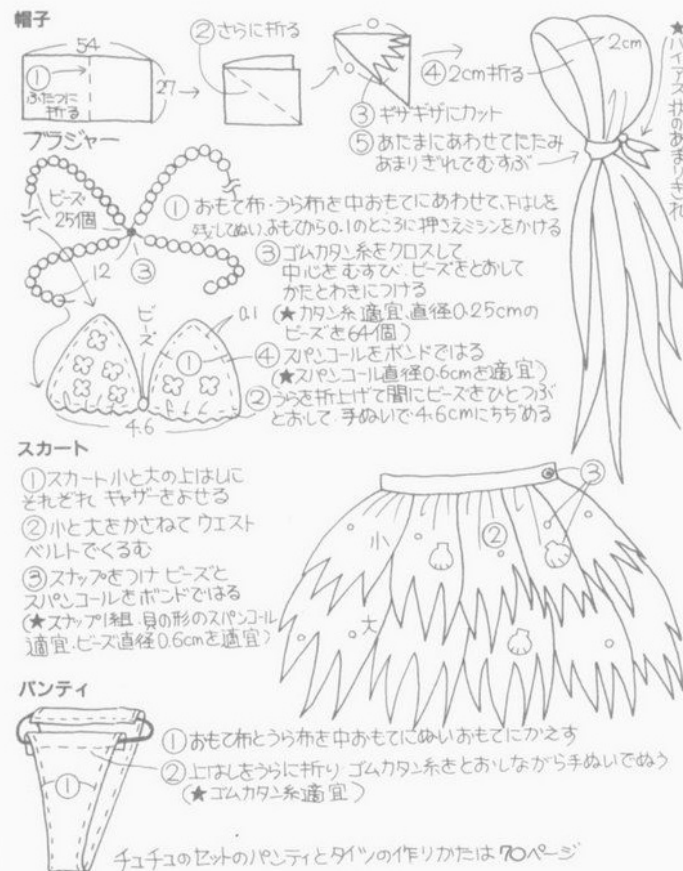 帽子
54
27
① ふたつに
折る
②さらに折る
③ギザギザにカット
④2cm折る
⑤あたまにあわせてたたみ
あまりぎれでむすぶ
2cm
★バイアス状のあまりぎれ
ブラジャー
ビーズ
25個
12
③
①おもて布・うら布を中おもてにあわせて、下はしを
残してぬい、おもてから0.1のところに押さえミシンをかける
③ゴムカタン糸をクロスして
中心をむすび、ビーズをとおして
かたとわきにつける
(★カタン糸適宜、直径0.25cmの
ビーズを64個)
④スパンコールをボンドではる
(★スパンコール直径0.6cmを適宜)
②うらを折上げて間にビーズをひとつぶ
とおして、手ぬいで4.6cmにちぢめる
ビーズ
0.1
①
4.6
スカート
①スカート小と大の上はしに
それぞれ ギャザーをよせる
②小と大をかさねて ウエスト
ベルトでくるむ
③スナップをつけ ビーズと
スパンコールをボンドではる
(★スナップ1組、貝の形のスパンコール
適宜、ビーズ直径0.6cmを適宜)
小
②
③
大
パンティ
①
①おもて布とうら布を中おもてにぬいおもてにかえす
②上はしをうらに折り、ゴムカタン糸をとおしながら手ぬいでぬう
(★ゴムカタン糸適宜)
チュチュのセットのパンティとタイツの作りかたは70ページ